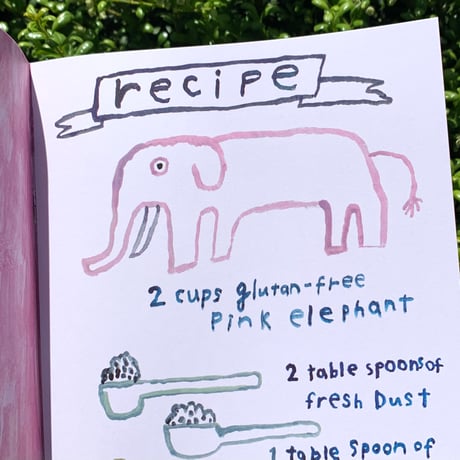 recipe
2 cups glutan-free
Pink elephant
2 table spoons of
fresh Dust
1 table spoon of